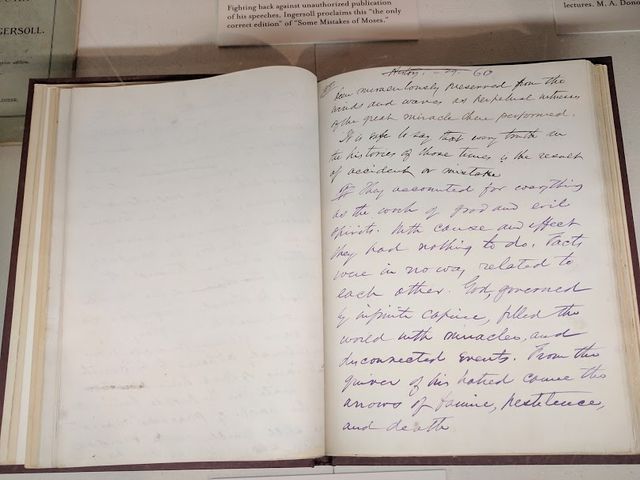 GERSOLL.
Fighting back against unauthorized publication
of his speeches, Ingersoll proclaims this "the only
correct edition" of "Some Mistakes of Moses."
lectures. M. A. Dono
History. - 29. 60
been miraculously preserved from the
winds and waves as perpetual witnesses
of the great miracle there performed.
It is safe to say that every truth in
the histories of those times is the result
of accident or mistake
They accounted for everything
as the work of good and evil
spirits. With cause and effect
they had nothing to do. Facts
were in no way related to
each other. God, governed
by infinite caprice, filled the
world with miracles, and
disconnected events. From the
quiver of his hatred came the
arrows of famine, pestilence,
and death.